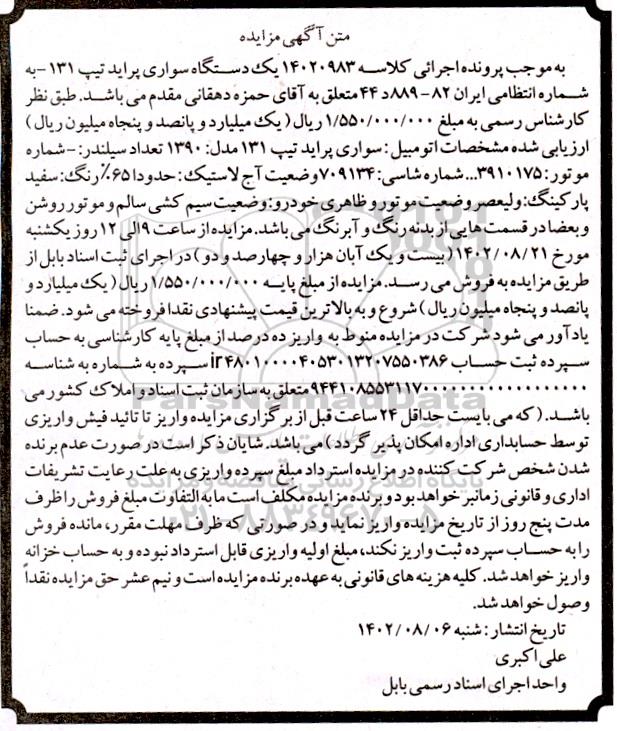 متن آگهی مزایده
به موجب پرونده اجرائی کلاسه ۱۴۰۲۰۹۸۳ یک دستگاه سواری پراید تیپ ۱۳۱ -به
شماره انتظامی ایران ۸۲-۸۸۹د۴۴ متعلق به آقای حمزه دهقانی مقدم می باشد. طبق نظر
کارشناس رسمی به مبلغ ۱/۵۵۰/۰۰۰/۰۰۰ ریال (یک میلیارد و پانصد و پنجاه میلیون ریال)
ارزیابی شده مشخصات اتومبیل: سواری پراید تیپ ۱۳۱ مدل: ۱۳۹۰ تعداد سیلندر: -شماره
موتور: ۳۹۱۰۱۷۵... شماره شاسی: ۷۰۹۱۳۴ وضعیت آج لاستیک: حدودا ۶۵٪ رنگ: سفید
پارکینگ: ولیعصر وضعیت موتور و ظاهری خودرو: وضعیت سیم کشی سالم و موتور روشن
و بعضا در قسمت هایی از بدنه رنگ و آبرنگ می باشد. مزایده از ساعت ۹ الی ۱۲ روز یکشنبه
مورخ ۱۴۰۲/۰۸/۲۱ (بیست و یک آبان هزار و چهارصد و دو) در اجرای ثبت اسناد بابل از
طریق مزایده به فروش می رسد. مزایده از مبلغ پایه ۱/۵۵۰/۰۰۰/۰۰۰ ریال (یک میلیارد و
پانصد و پنجاه میلیون ریال) شروع و به بالاترین قیمت پیشنهادی نقدا فروخته می شود. ضمنا
یادآور می شود شرکت در مزایده منوط به واریز ده درصد از مبلغ پایه کارشناسی به حساب
سپرده ثبت حساب ir۴۸۰۱۰۰۰۰۴۰۵۳۰۱۳۲۰۷۵۵۰۳۸۶ سپرده به شماره به شناسه
۹۴۴۱۰۸۵۵۳۱۱۷۰۰۰۰۰۰۰۰۰۰۰۰۰۰۰۰۰۰ متعلق به سازمان ثبت اسناد و املاک کشور می
باشد. (که می بایست حداقل ۲۴ ساعت قبل از برگزاری مزایده واریز تا تائید فیش واریزی
توسط حسابداری اداره امکان پذیر گردد) می باشد. شایان ذکر است در صورت عدم برنده
شدن شخص شرکت کننده در مزایده استرداد مبلغ سپرده واریزی به علت رعایت تشریفات
اداری و قانونی زمانبر خواهد بود و برنده مزایده مکلف است مابه التفاوت مبلغ فروش را ظرف
مدت پنج روز از تاریخ مزایده واریز نماید و در صورتی که ظرف مهلت مقرر، مانده فروش
را به حساب سپرده ثبت واریز نکند، مبلغ اولیه واریزی قابل استرداد نبوده و به حساب خزانه
واریز خواهد شد. کلیه هزینه های قانونی به عهده برنده مزایده است و نیم عشر حق مزایده نقداً
وصول خواهد شد.
تاریخ انتشار: شنبه ۱۴۰۲/۰۸/۰۶
علی اکبری
واحد اجرای اسناد رسمی بابل
ParsNamadData
پایگاه اطلاع رسانی مناقصه و مزایده